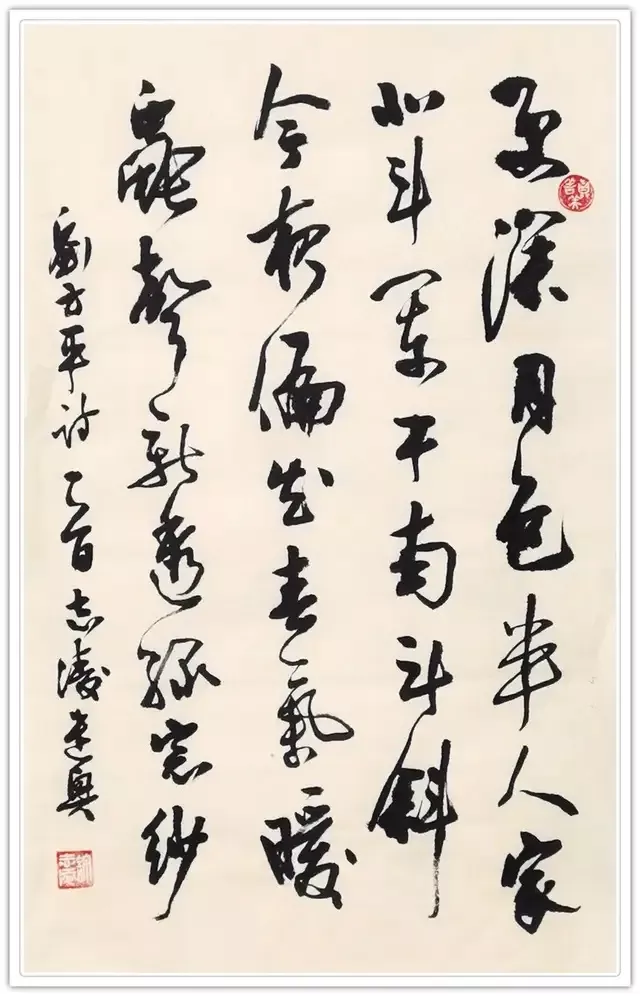 更深月色半人家
北斗闌干南斗斜
今夜偏知春氣暖
蟲聲新透綠窗紗
劉方平詩 乙酉 志凌